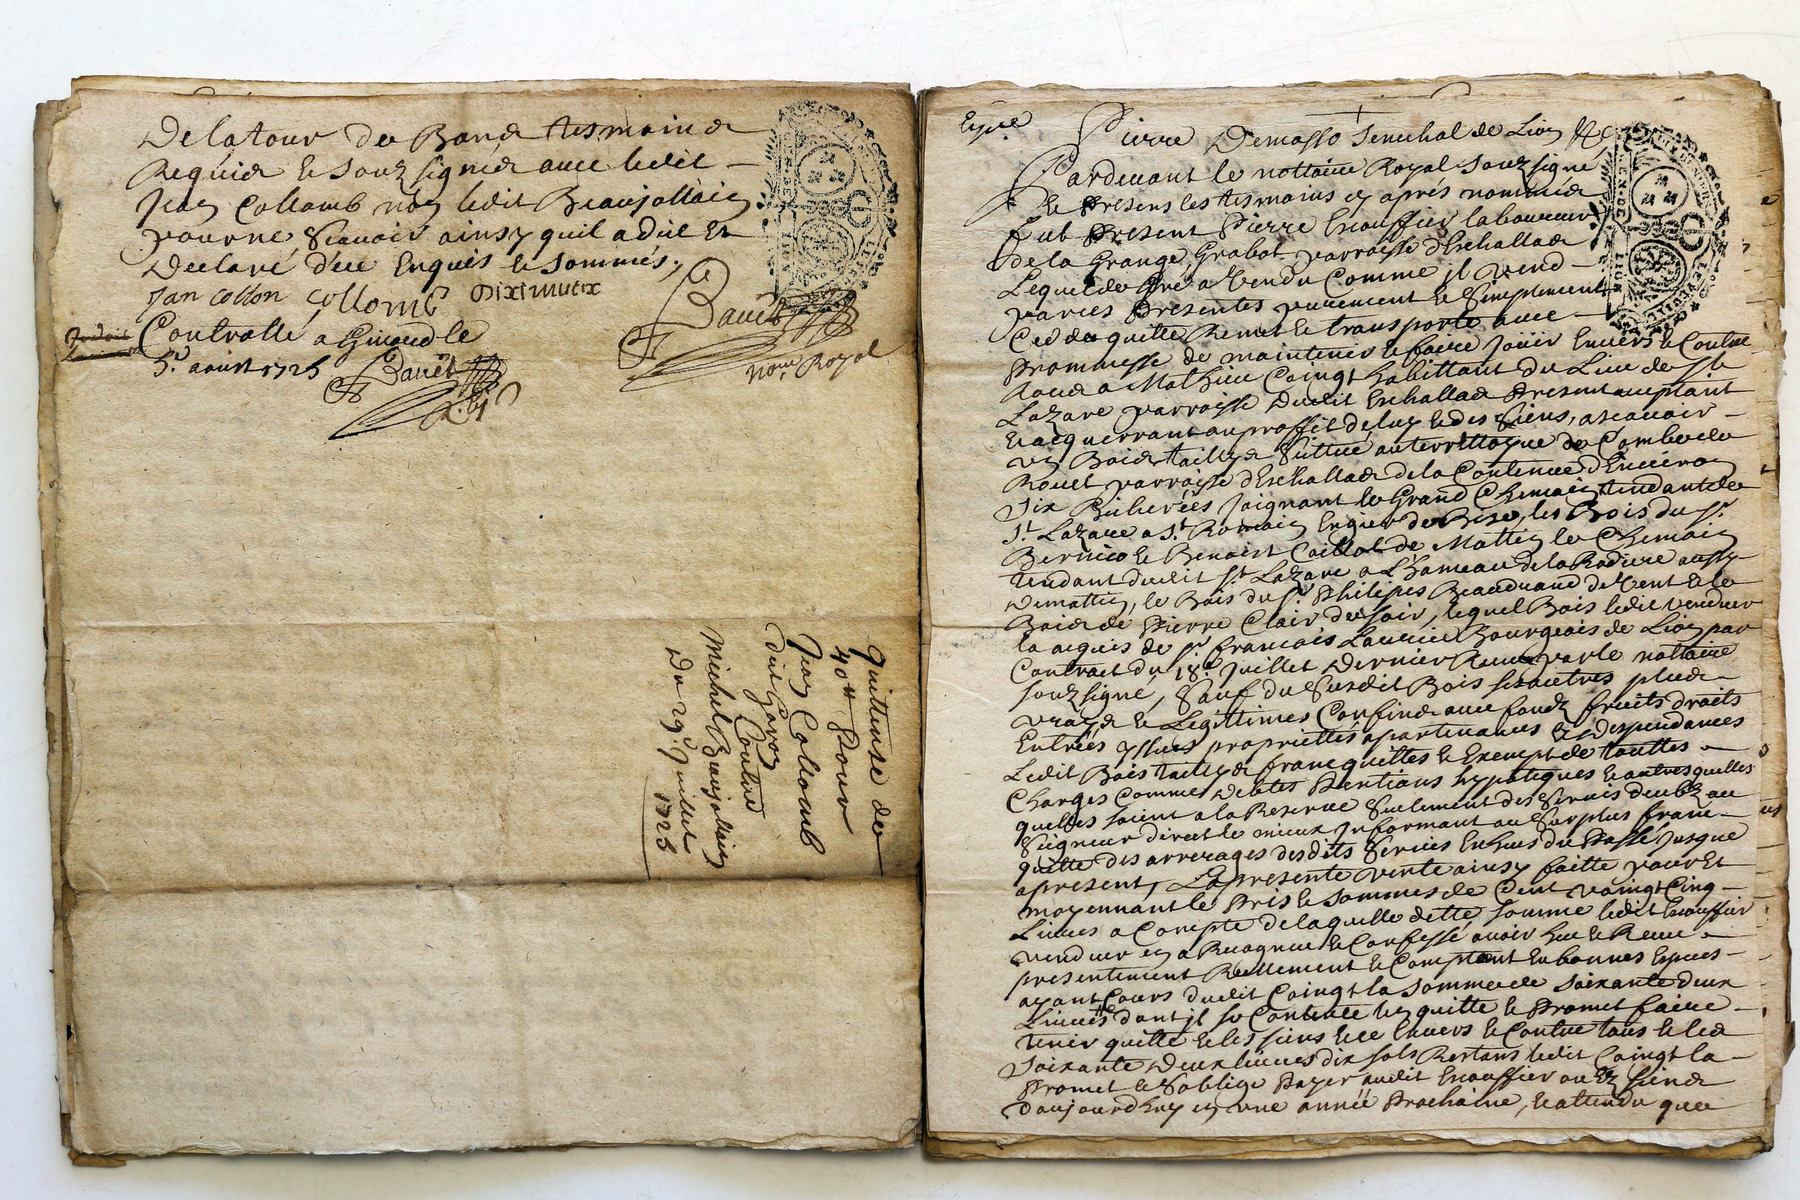 Delatour de Bane tesmoins
Requis & souz signés avec ledit
Jean Collomb non ledit Beaujollais
pour ne scavoir ainsy quil a dit Et
Declaré d'ice Enquis & sommés,
Jan collon collomb
Bauët
no.re Royal
Controllé a Givord le
5.e aoust 1725
Bauët
Quittense de
40tt Pour
Jean Collomb
dit Goron
Contre
Michel Beaujollais
Du 29.e Juillet
1725
Pierre Demasso Senechal de Lion &c
Pardevant le nottaire Royal souz signé
& Presens les tesmoins cy apres nommés
fut Present Pierre Escoffier laboureur
de la Grange Grabot parroisse d'Eschallas
Lequel de gré a vendu Comme il vend
par ces Presentes purement & simplement
Cede quitte Remet & transporte avec
Promesse de maintenir & faire Jouir Envers & Contre
tous a Mathieu Coingt habittant du Lieu de St
Lazare parroisse dudit Eschallas Present acceptant
& acquerrant au proffit de luy & des siens, ascavoir
un Bois taillys scittué au territtoyre de Combe de
Rouet parroisse d'Eschallas de la Contenue d'Environ
six Bicherées Joignant le Grand Chemain tendant de
St. Lazare a St. Romain Enquer de Bize, les Bois du Sr.
Bernico & Benoist Caillot de Mattin le Chemain
tendant dudit St. Lazare a L'hameau de la Rodiere aussy
de mattin, le Bois du Sr. Philipes Beauduand de Vent & le
Bois de Pierre Clair de soir, lequel Bois ledit vendeur
la aquis de Sr. francois Lauricie Bourgeois de Lion par
Contract du 18e. Juillet dernier Receu par le nottaire
souz signé, Sauf du susdit Bois ses autres plus
vrays & Legittimes Confins avec fondz fruits droits
Entrées yssues propriettes apartenances & despendances
Ledit Bois taillys franc quitte & Exempt de touttes
Charges Comme debtes Pentions hypoteques & autres quelles
quelles soient a la Reserve seulement des servis deubz au
seigneur direct le mieux Informant au surplus franc
quitte des arrerages desdits servis Enhus du Passé Jusque
apresent, La presente vente ainsy faitte pour Et
moyennant le Pris & sommes de Cent vaingt Cinq
Livres a Compte de laquelle dette somme ledit Escoffier
vendeur en a Recognu & Confessé avoir heu & Receu
presentement Reellement & Comptant En bonnes Especes
ayant Cours dudit Coingt la somme de soixante deux
Livres dont il se Contente len quitte & Promet faire
tenir quitte & les siens Envers & Contre tous & les
soixante deux livres dix sols Restans ledit Coingt la
Promet & s'oblige Payer audit Escoffier ou Ez siens
d'aujourdhuy En une année Prochaine, & attendu que